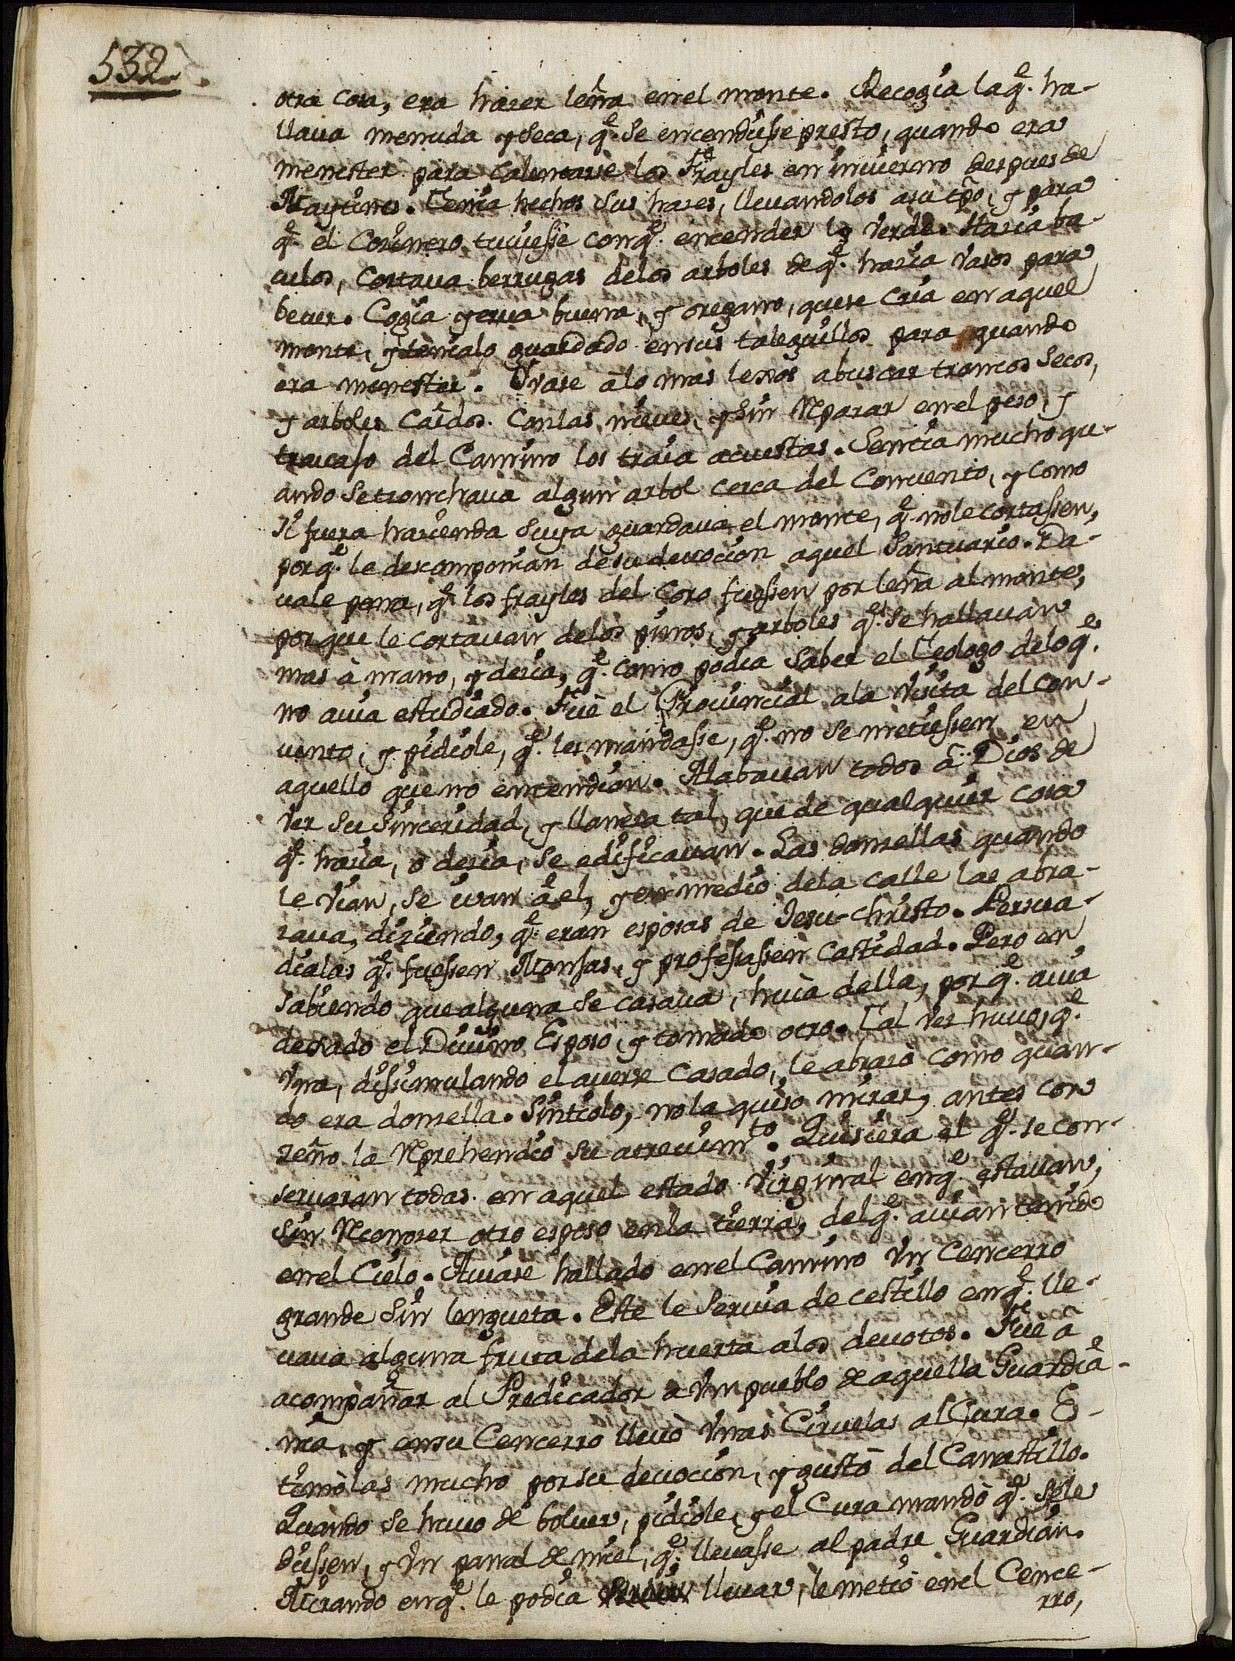 532.
otra cosa, era hazer leña en el monte. Recogia la q.e ha-
llaua menuda y seca, q.e se encendiesse presto, quando era
menester para calentarse los frayles en inuierno despues de
Maytines. Tenia hechos sus hazes, lleuandolos a su tpõ, y para
q.e el Cozinero tuuiesse con q.e encender lo verde. Hazia ba-
culos, cortaua berrugas de los arboles de q.e hazia vasos para
beuer. Cogia yerua buena, y oregano, que se cria en aquel
monte, y tenialo guardado en sus taleguillos para quando
era menester. Yvase à lo mas lexos a buscar troncos secos,
y arboles caidos. Con las nieues, y sin Reparar en el peso, y
trauajo del Camino los traia acuestas. Sentia mucho qu-
ando se tronchaua algun arbol cerca del Conuento, y como
si fuera hazienda suya guardaua el monte, q.e no le cortassen,
porq.e le descomponian de su deuocion aquel Santuario. Da-
uale pena, q.e los frayles del Coro fuessen por leña al monte,
porque le cortauan de los pinos, y arboles q.e se hallauan
mas à mano, y dezia, q.e como podia saber el Teologo de lo q.e
no auia estudiado. Fue el Prouincial a la visita del Con-
uento, y pidiole, q.e les mandasse, q.e no se metiessen en
aquello que no entendian. Alabauan todos à Dios de
ver su sinceridad, y llaneza tal, que de qualquier cosa
q.e hazia, o dezia, se edificauan. Las donzellas quando
le vian, se ivan à el, y en medio de la calle las abra-
zaua, diziendo, q.e eran esposas de Iesu-christo. Persua-
dialas q.e fuessen Monjas, y professassen castidad. Pero en
sabiendo que alguna se casaua, huia della, porq.e auia
dexado el Diuino Esposo, y tomado otro. Tal vez huuo, q.e
vna, disimulando el auerse casado, le abrazò como quan-
do era donzella. Sintiolo, no la quiso mirar, antes con
zeño la Reprehendio su atreuim.to. Quisiera el q.e se con-
seruaran todas en aquel estado Virginal en q.e estauan,
sin Reconozer otro esposo en la tierra, del q.e auian tenido
en el Cielo. Auiase hallado en el Camino vn Cencerro
grande sin lengueta. Este le seruia de cestillo en q.e lle-
uaua alguna fruta de la huerta a los deuotos. Fuè à
acompañar al Predicador a vn pueblo de aquella Guardia-
nia, y en su Cencerro lleuò vnas Ciruelas al Cura. Es-
timòlas mucho por su deuocion, y gustò del Canastillo.
Quando se huuo de boluer, pidiole, y el Cura mandò q.e se le
diessen, y vn panal de miel, q.e lleuasse al padre Guardian.
Mirando en q.e le podia lleuar, le metiò en el Cence-
rro,